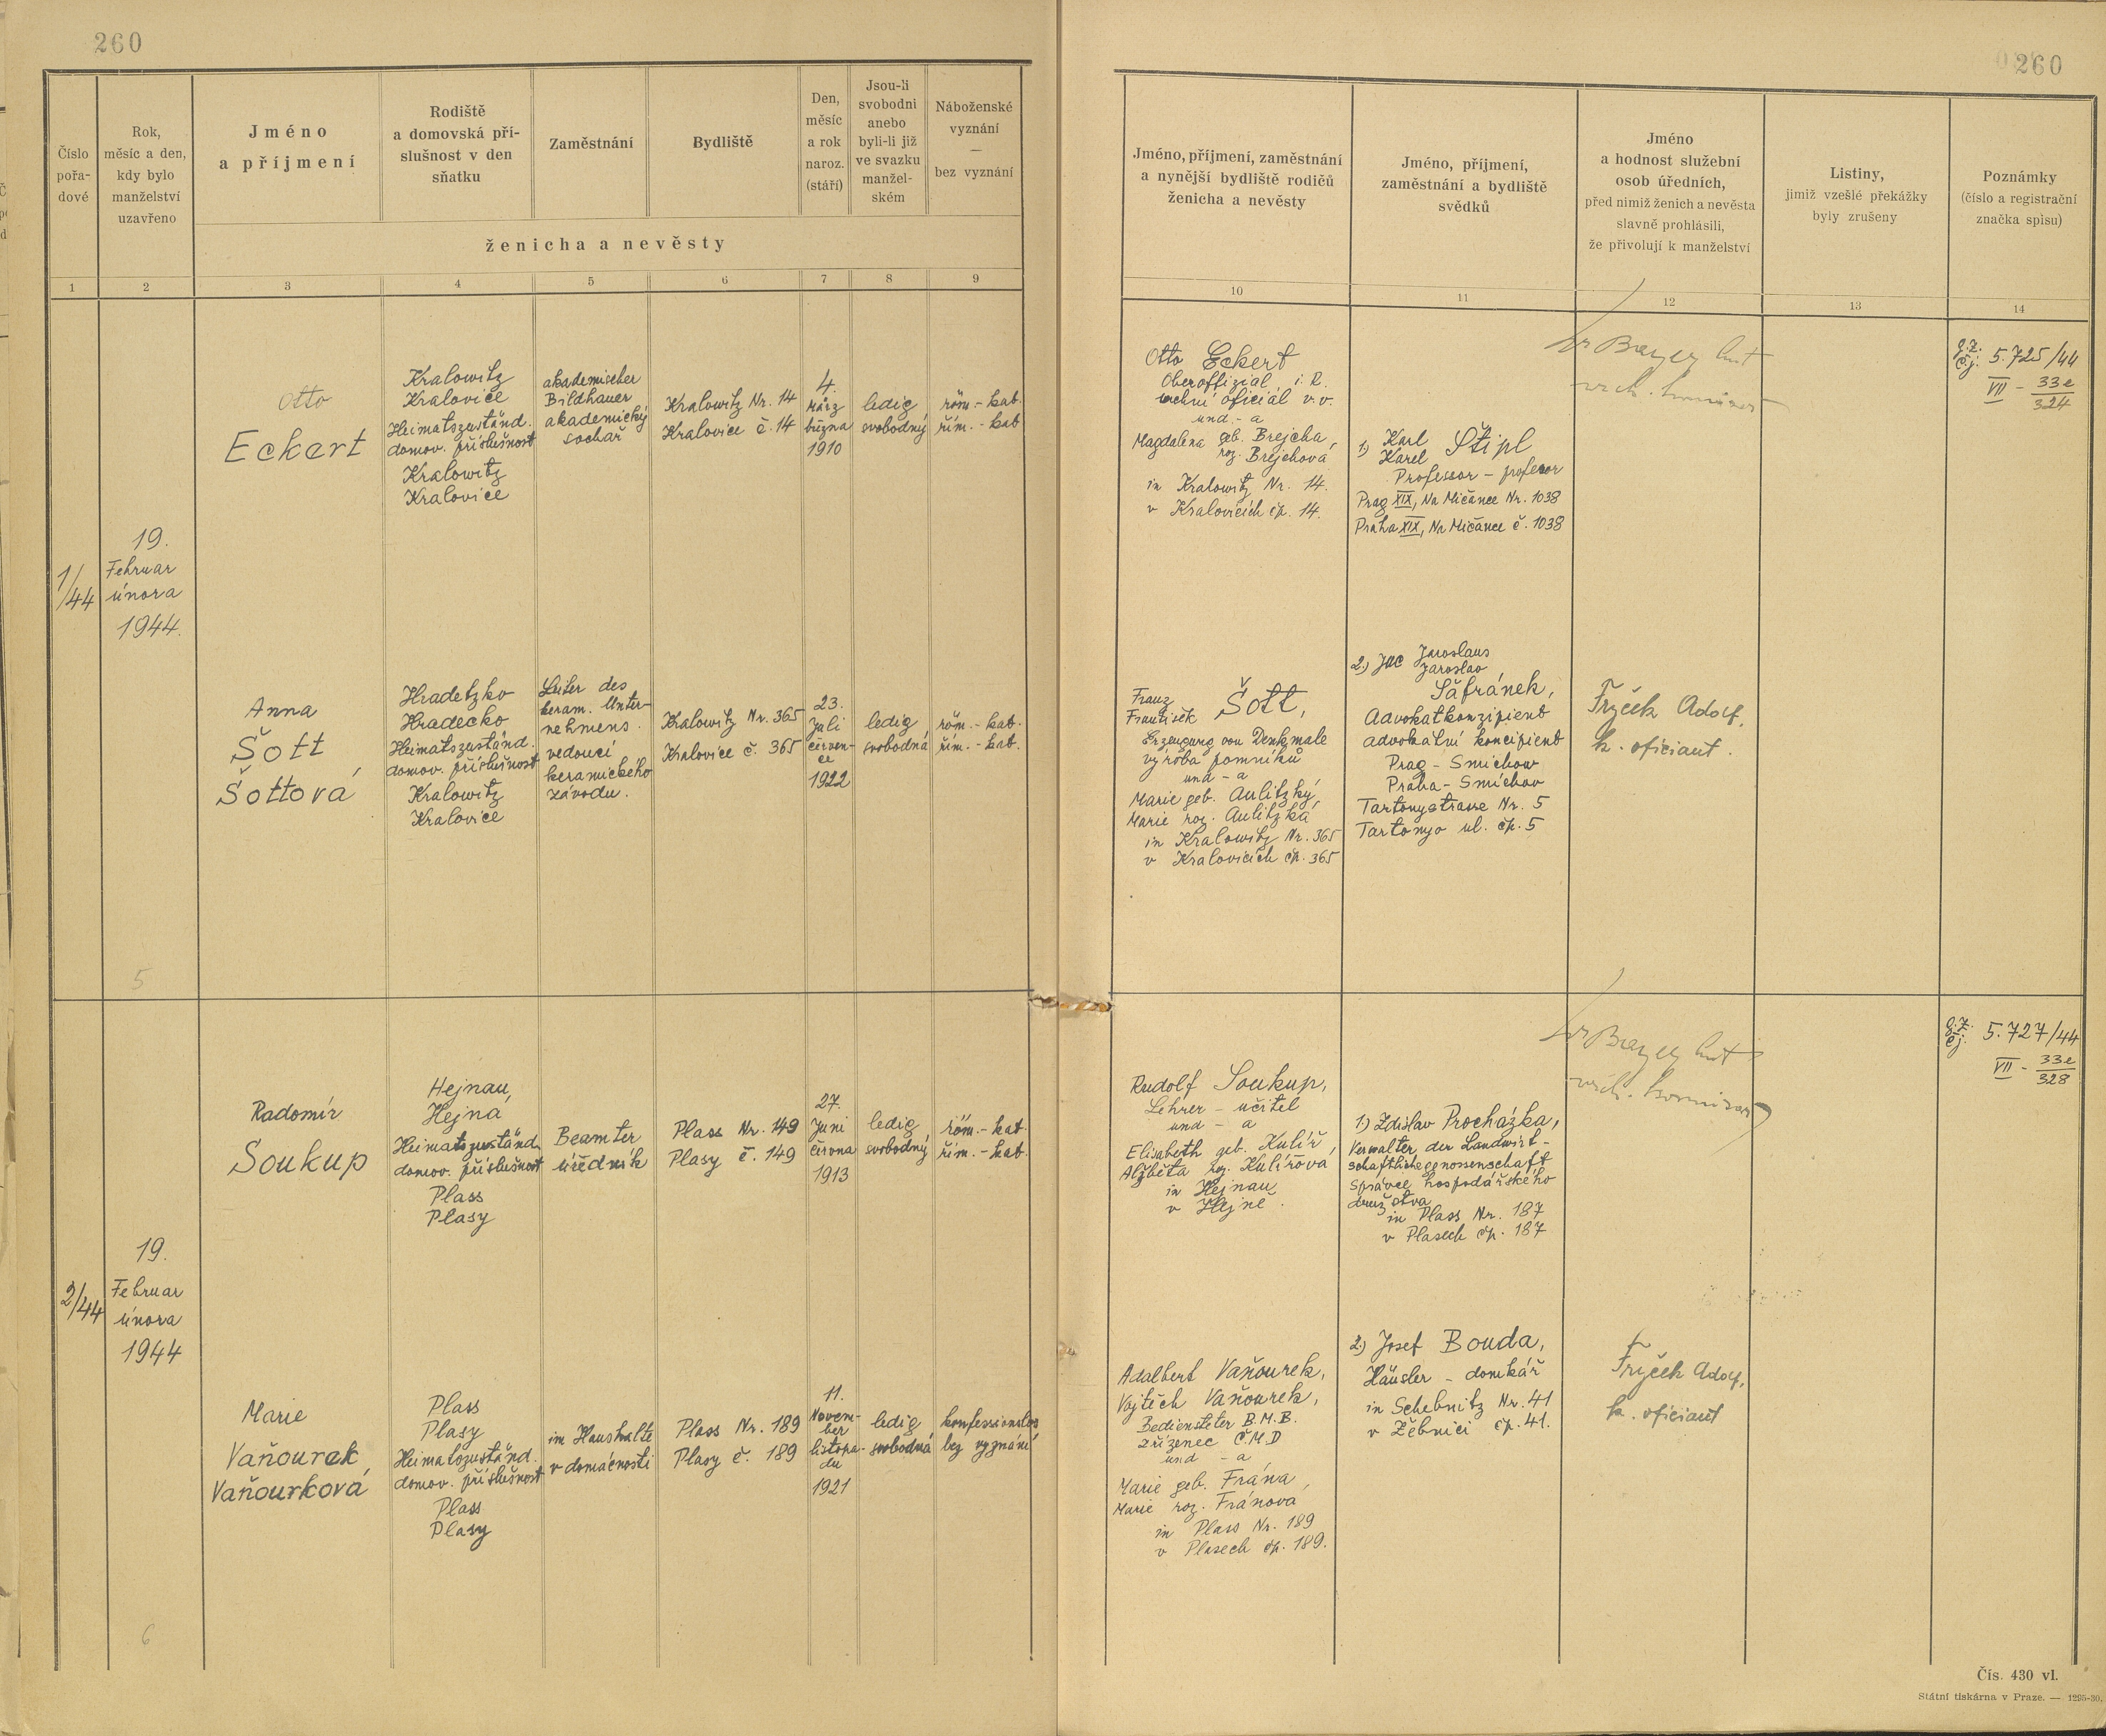 260
260
Číslo
pořa-
dové
Rok,
měsíc a den,
kdy bylo
manželství
uzavřeno
Jméno
a příjmení
Rodiště
a domovská pří-
slušnost v den
sňatku
Zaměstnání
Bydliště
Den,
měsíc
a rok
naroz.
(stáří)
Jsou-li
svobodni
anebo
byli-li již
ve svazku
manžel-
ském
Náboženské
vyznání
—
bez vyznání
ženicha a nevěsty
Jméno, příjmení, zaměstnání
a nynější bydliště rodičů
ženicha a nevěsty
Jméno, příjmení,
zaměstnání a bydliště
svědků
Jméno
a hodnost služební
osob úředních,
před nimiž ženich a nevěsta
slavně prohlásili,
že přivolují k manželství
Listiny,
jimiž vzešlé překážky
byly zrušeny
Poznámky
(číslo a registrační
značka spisu)
1 2 3 4 5 6 7 8 9
10 11 12 13 14
1/44
19.
Februar
února
1944.
Otto
Eckert
Kralowitz
Kralovice
Heimatszuständ.
domov. příslušnost
Kralowitz
Kralovice
akademischer
Bildhauer
akademický
sochař
Kralowitz Nr. 14
Kralovice č. 14
4.
März
března
1910
ledig
svobodný
röm.-kat.
řím.-kat
Otto Eckert
Oberoffizial i. R.
oficiál v.v.
und - a
Magdalena geb. Brejcha,
roz. Brejchová
in Kralowitz Nr. 14.
v Kralovicích čp. 14.
1) Karl
Karel Štipl
Professor - profesor
Prag XIX, Na Mičánce Nr. 1038
Praha XIX, Na Mičánce č. 1038
g.Z.
čj. 5.725/44
VII - 33e
324
Anna
Šott,
Šottová
Hradetzko
Hradecko
Heimatszuständ.
domov. příslušnost
Kralowitz
Kralovice
Leiter des
keram. Unter-
nehmens.
vedoucí
keramického
závodu.
Kralowitz Nr. 365
Kralovice č. 365
23.
Juli
červen-
ce
1922
ledig
svobodná
röm.-kat.
řím.-kat.
Franz
František Šott,
Erzeugung von Denkmale
výroba pomníků
und - a
Marie geb. Aulitzký
Marie roz. Aulitzká
in Kralowitz Nr. 365
v Kralovicích čp. 365
2.) Jaroslaus
Jaroslav
Šafránek,
Advokatkonzipient
advokátní koncipient
Prag - Smichow
Praha - Smíchov
Nr. 5
ul. čp. 5
Fryček Adolf,
k. oficiant.
5
2/44
19.
Februar
února
1944
Radomír
Soukup
Hejnau,
Hejná
Heimatszuständ.
domov. příslušnost
Plass
Plasy
Beamter
úředník
Plass Nr. 149
Plasy č. 149
27.
Juni
června
1913
ledig
svobodný
röm.-kat.
řím.-kat.
Rudolf Soukup,
Lehrer - učitel
und - a
Elisabeth geb. Kulíř,
Alžběta roz. Kulířová
in Hejnau
v Hejné.
1) Zdislav Procházka,
Verwalter der Landwirt-
schaftlichegenossenschaft
správce hospodářského
družstva
in Plass Nr. 187
v Plasech čp. 187
g.Z.
čj. 5.727/44
VII - 33e
328
Marie
Vaňourek,
Vaňourková
Plass
Plasy
Heimatszuständ.
domov. příslušnost
Plass
Plasy
im Haushalte
v domácnosti
Plass Nr. 189
Plasy č. 189
11.
Novem-
ber
listopa-
du
1921
ledig
svobodná
konfessionslos
bez vyznání
Adalbert Vaňourek,
Vojtěch Vaňourek,
Bediensteter B.M.B.
zřízenec Č.M.D
und - a
Marie geb. Frána,
Marie roz. Fránová
in Plass Nr. 189
v Plasech čp. 189.
2.) Josef Bouda,
Häusler - domkář
in Schebnitz Nr. 41
v Žebnici čp. 41.
Fryček Adolf,
k. oficiant
6
Čís. 430 vl.
Státní tiskárna v Praze. — 1295-30.